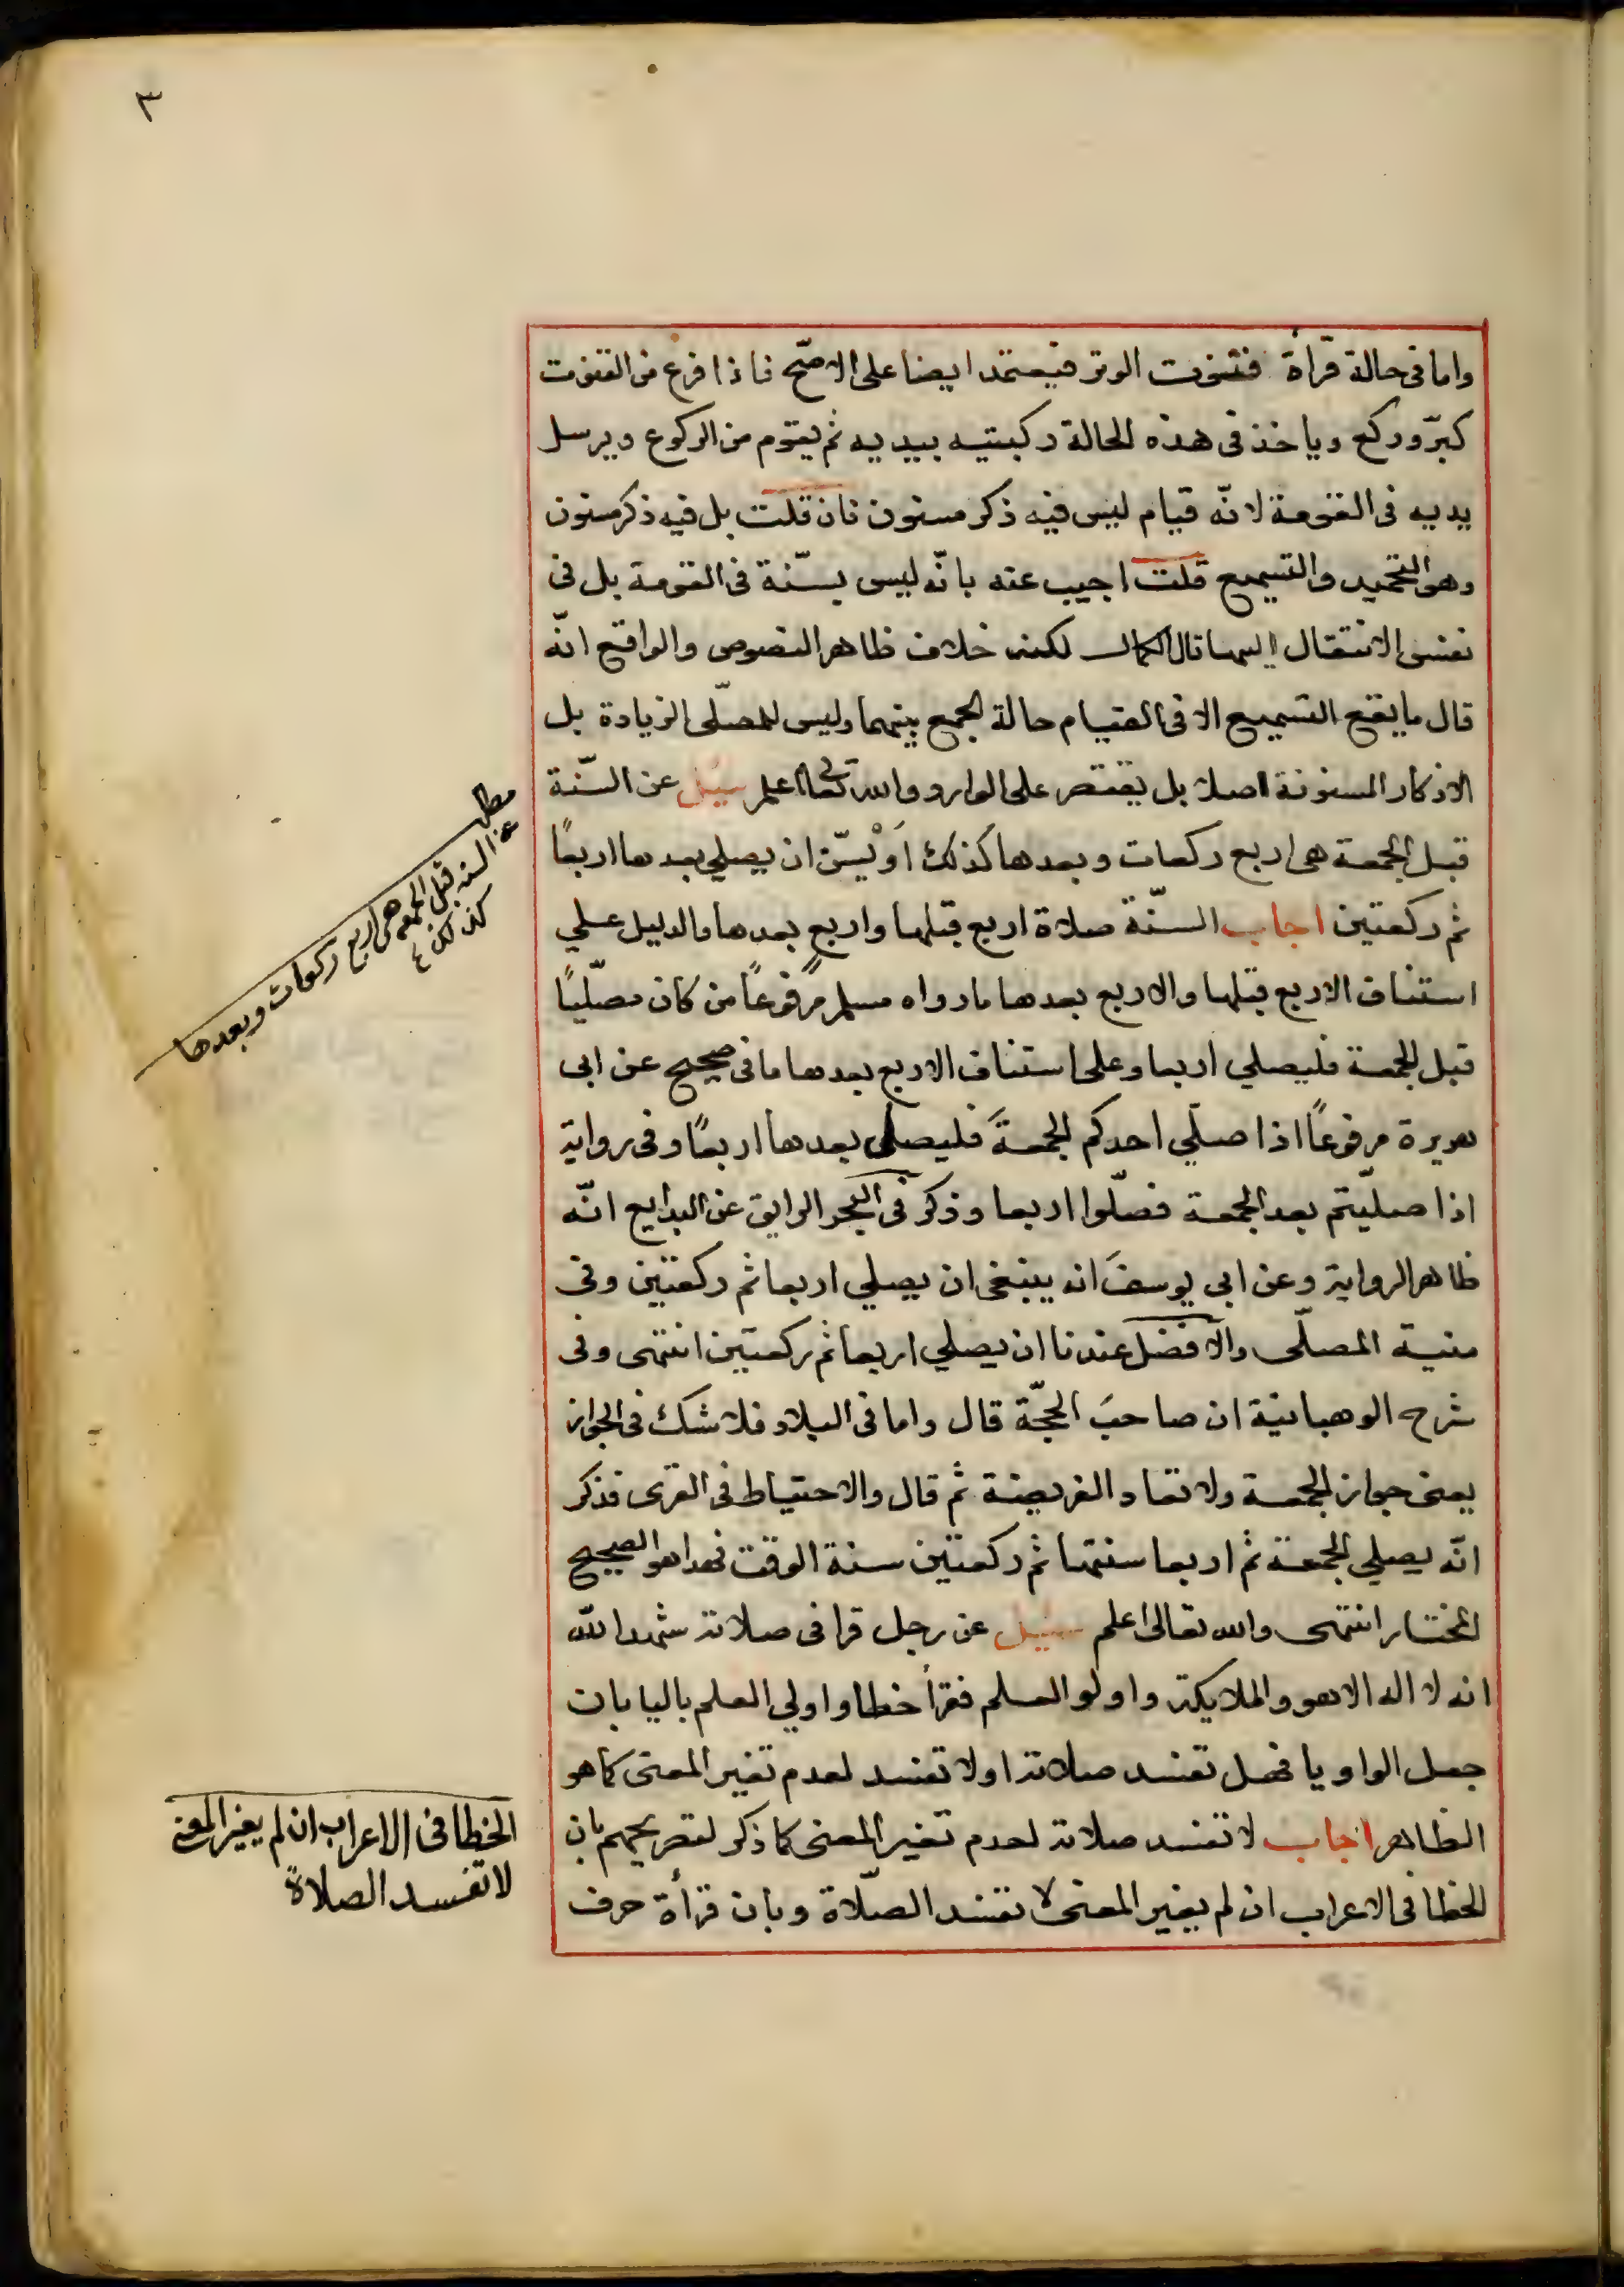 ٣
واما فى حالة قرأة قنوت الوتر فيعتمد ايضا على الاصّح فاذا فرغ من القنوت
كبرّ وركع وياخذ فى هذه الحالة ركبتيه بيديه ثم يقوم من الركوع ويرسل
يديه فى القومة لانّه قيام ليس فيه ذكر مسنون فان قلت بل فيه ذكر مسنون
وهو التحميد والتسميع قلت اجيب عنه بانّه ليس بسّنة فى القومة بل فى
نفس الانتقال اليها قال الكمال لكنه خلاف ظاهر النصوص والواقع انّه
قال ما يقع التسميع الا فى القيام حالة الجمع بينهما وليس للمصلّى الزيادة بل
الاذكار المسنونة اصلا بل يقتصر على الوارد والله تعالى اعلم سيُل عن السّنة
قبل الجمعة هى اربع ركعات وبعدها كذلك اَوْ يسّن ان يصلي بعدها اربعًا
ثم ركعتين اجاب السّنة صلاة اربع قبلها واربع بعدها والدليل علي
استناف الاربع قبلها والاربع بعدها ما رواه مسلم مرفوعًا من كان مصلّيًا
قبل الجمعة فليصلي اربعا وعلى استناف الاربع بعدها ما فى صحيح عن ابى
هريرة مرفوعًا اذا صلّي احدكم الجمعةَ فليصلى بعدها اربعًا وفى رواية
اذا صليّتم بعد الجمعة فصلّوا اربعا وذكر فى البحر الرايق عن البدايع انّه
ظاهر الرواية وعن ابى يوسفَ انه ينبغى ان يصلي اربعا ثم ركعتين وفى
منية المصلّى والافضل عندنا ان يصلي اربعا ثم ركعتين انتهى وفى
شرح الوهبانية ان صاحبَ الحجّة قال واما فى البلاد فلا شك فى الجواز
يعنى جواز الجمعة ولا تعاد الفريضة ثم قال والاحتياط فى القرى فذكر
انّه يصلي الجمعة ثم اربعا سنتها ثم ركعتين سنة الوقت فهذا هو الصحيح
المختار انتهى والله تعالى اعلم سئيل عن رجل قرا فى صلاته شهد الله
انه لا اله الا هو والملايكة واولو العلم فقرأ خطا واولي العلم باليا بان
جعل الواو يا فهل تفسد صلاته اولا تفسد لعدم تغير المعنى كما هو
الظاهر اجاب لا تفسد صلاته لعدم تغير المعنى كما ذكر لتصريحهم بان
الخطا فى الاعراب ان لم يغير المعنى لا تفسد الصلّاة وبان قرأة حرف
مطلب
عن السنه قبل الجمعه هى اربع ركعات وبعدها
كذلك
الخطا فى الاعراب ان لم يغير المعنى
لا تفسد الصلاة